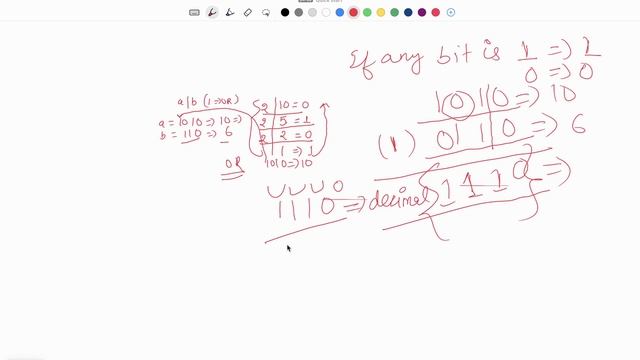 If any bit is 1 => 1
0 => 0
a|b (1 => OR)
a = 1010 => 10 =>
b = 110 => 6
OR
2 | 10 = 0
2 | 5 = 1
2 | 2 = 0
1 => 1
1010 => 10
1010 => 10
(1) 0110 => 6
1110 =>
0
1110 => decimal